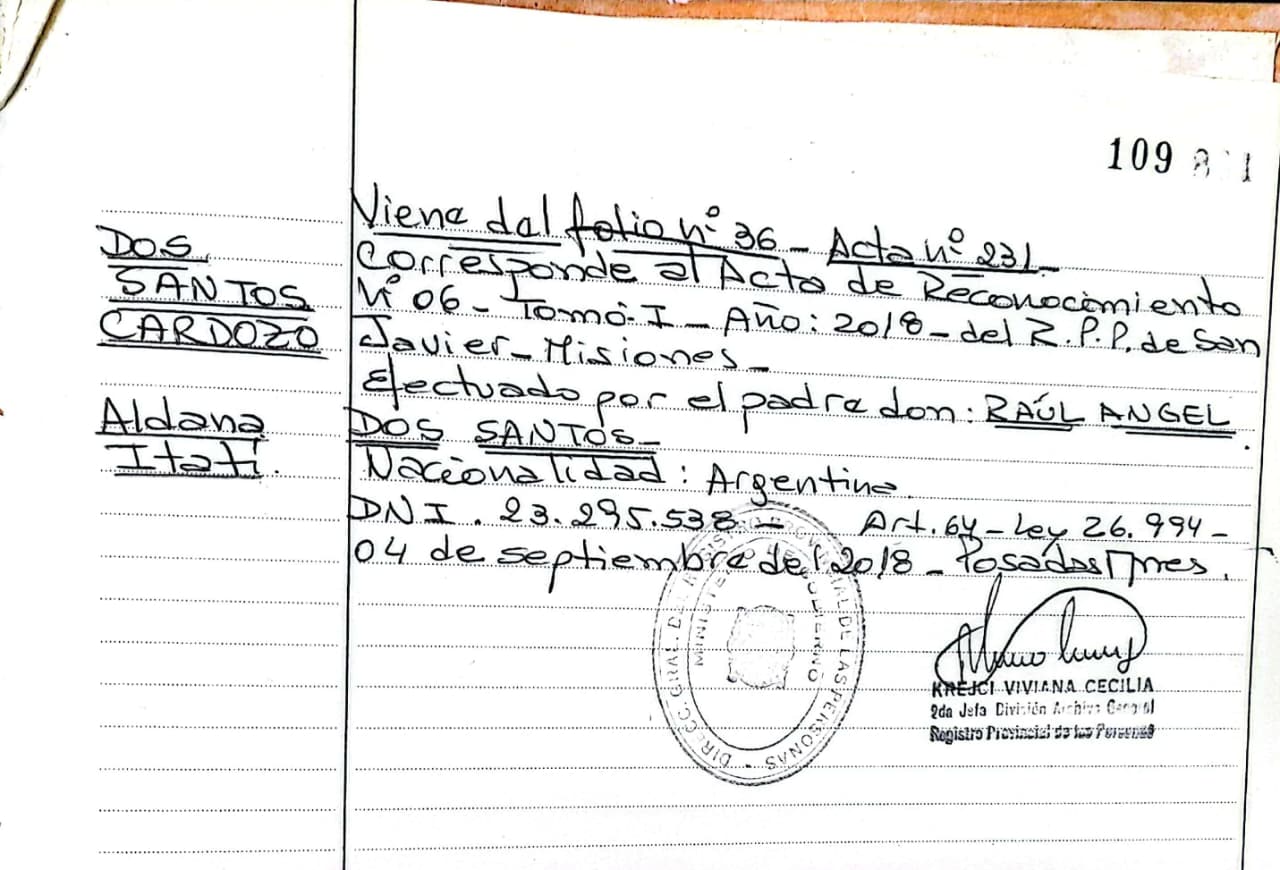 109
DOS
SANTOS
CARDOZO
Aldana
Itatí.
Viene del folio nº 36 - Acta nº 231 -
Corresponde al Acta de Reconocimiento
Nº 06 - Tomo: I - Año: 2018 - del R.P.P. de San
Javier - Misiones -
Efectuado por el padre don: RAÚL ANGEL
DOS SANTOS -
Nacionalidad: Argentina.
DNI. 23.295.538 - Art. 64 - Ley 26.994 -
04 de septiembre del 2018 - Posadas Mnes.
DIRECC. GRAL. DEL REGISTRO PROVINCIAL DE LAS PERSONAS
MINISTERIO DE GOBIERNO
KREJCI VIVIANA CECILIA
2da Jefa División Archivo General
Registro Provincial de las Personas